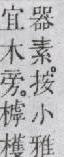 器素按小雅
宜木旁。樗檴